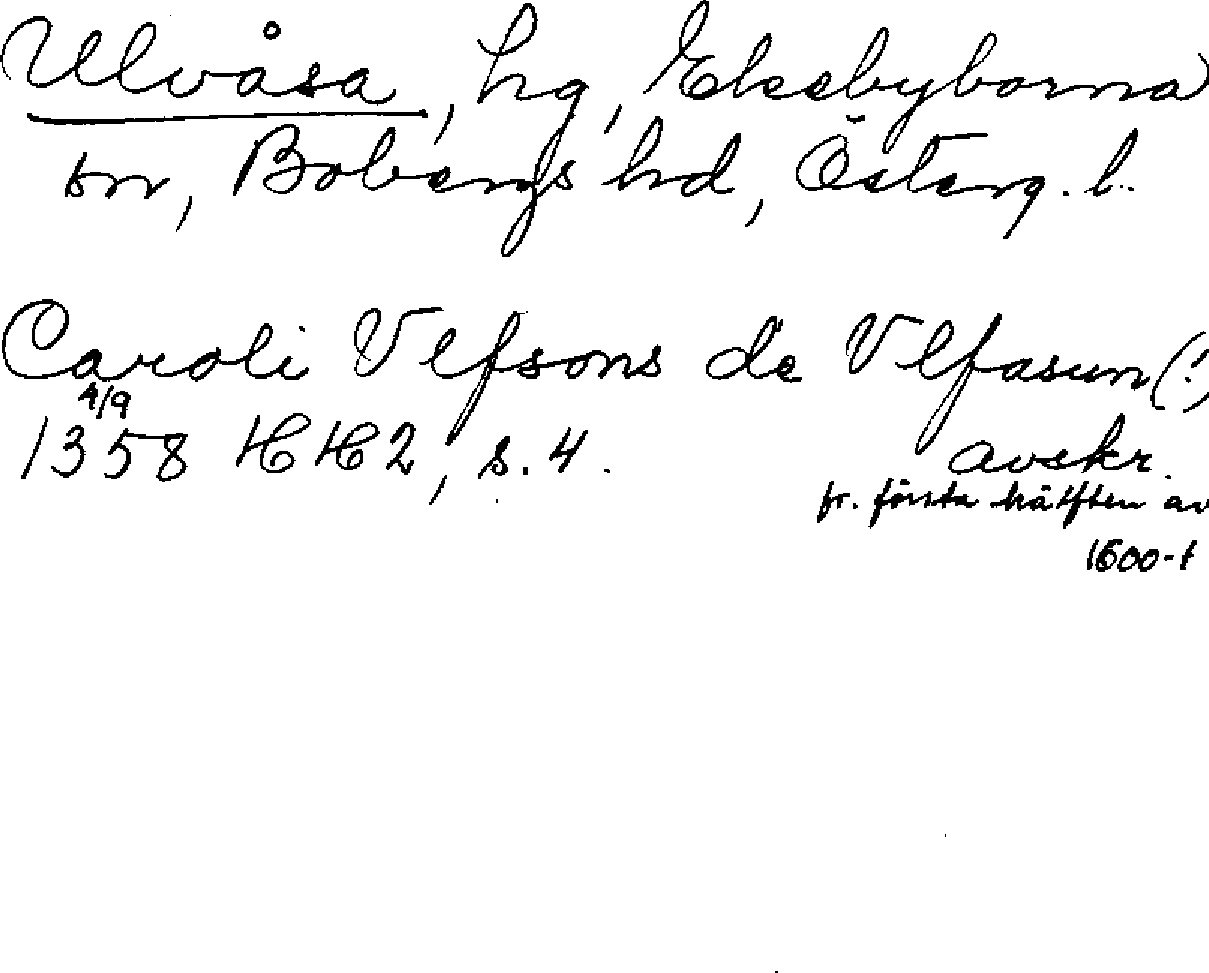 Ulvåsa, hg, Ekebyborna
sn, Bobergs hd, Österg. l.
Caroli Vlfsons de Vlfasum (!)
4/9
1358 HH2, s. 4. avskr.
fr. första hälften av
1600-t